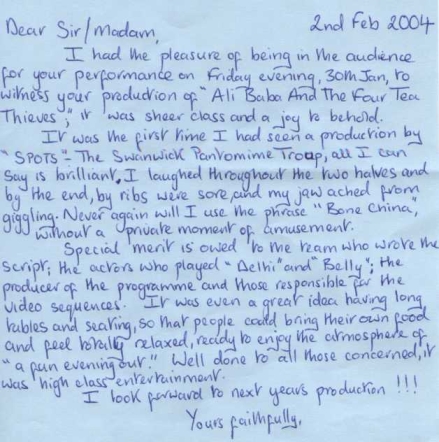 2nd Feb 2004
Dear Sir/Madam,
I had the pleasure of being in the audience
for your performance on Friday evening, 30th Jan, to
witness your production of "Ali Baba And The Four Tea
Thieves"; it was sheer class and a joy to behold.
It was the first time I had seen a production by
"SPOTS" - The Swanwick Pantomime Troup, all I can
say is brilliant. I laughed throughout the two halves and
by the end, by ribs were sore, and my jaw ached from
giggling. Never again will I use the phrase "Bone China",
without a private moment of amusement.
Special merit is owed to the team who wrote the
script; the actors who played "Delhi" and "Belly"; the
producer of the programme and those responsible for the
video sequences. It was even a great idea having long
tables and seating, so that people could bring their own food
and feel totally relaxed, ready to enjoy the atmosphere of
"a fun evening out." Well done to all those concerned, it
was high class entertainment.
I look forward to next years production !!!
Yours faithfully,